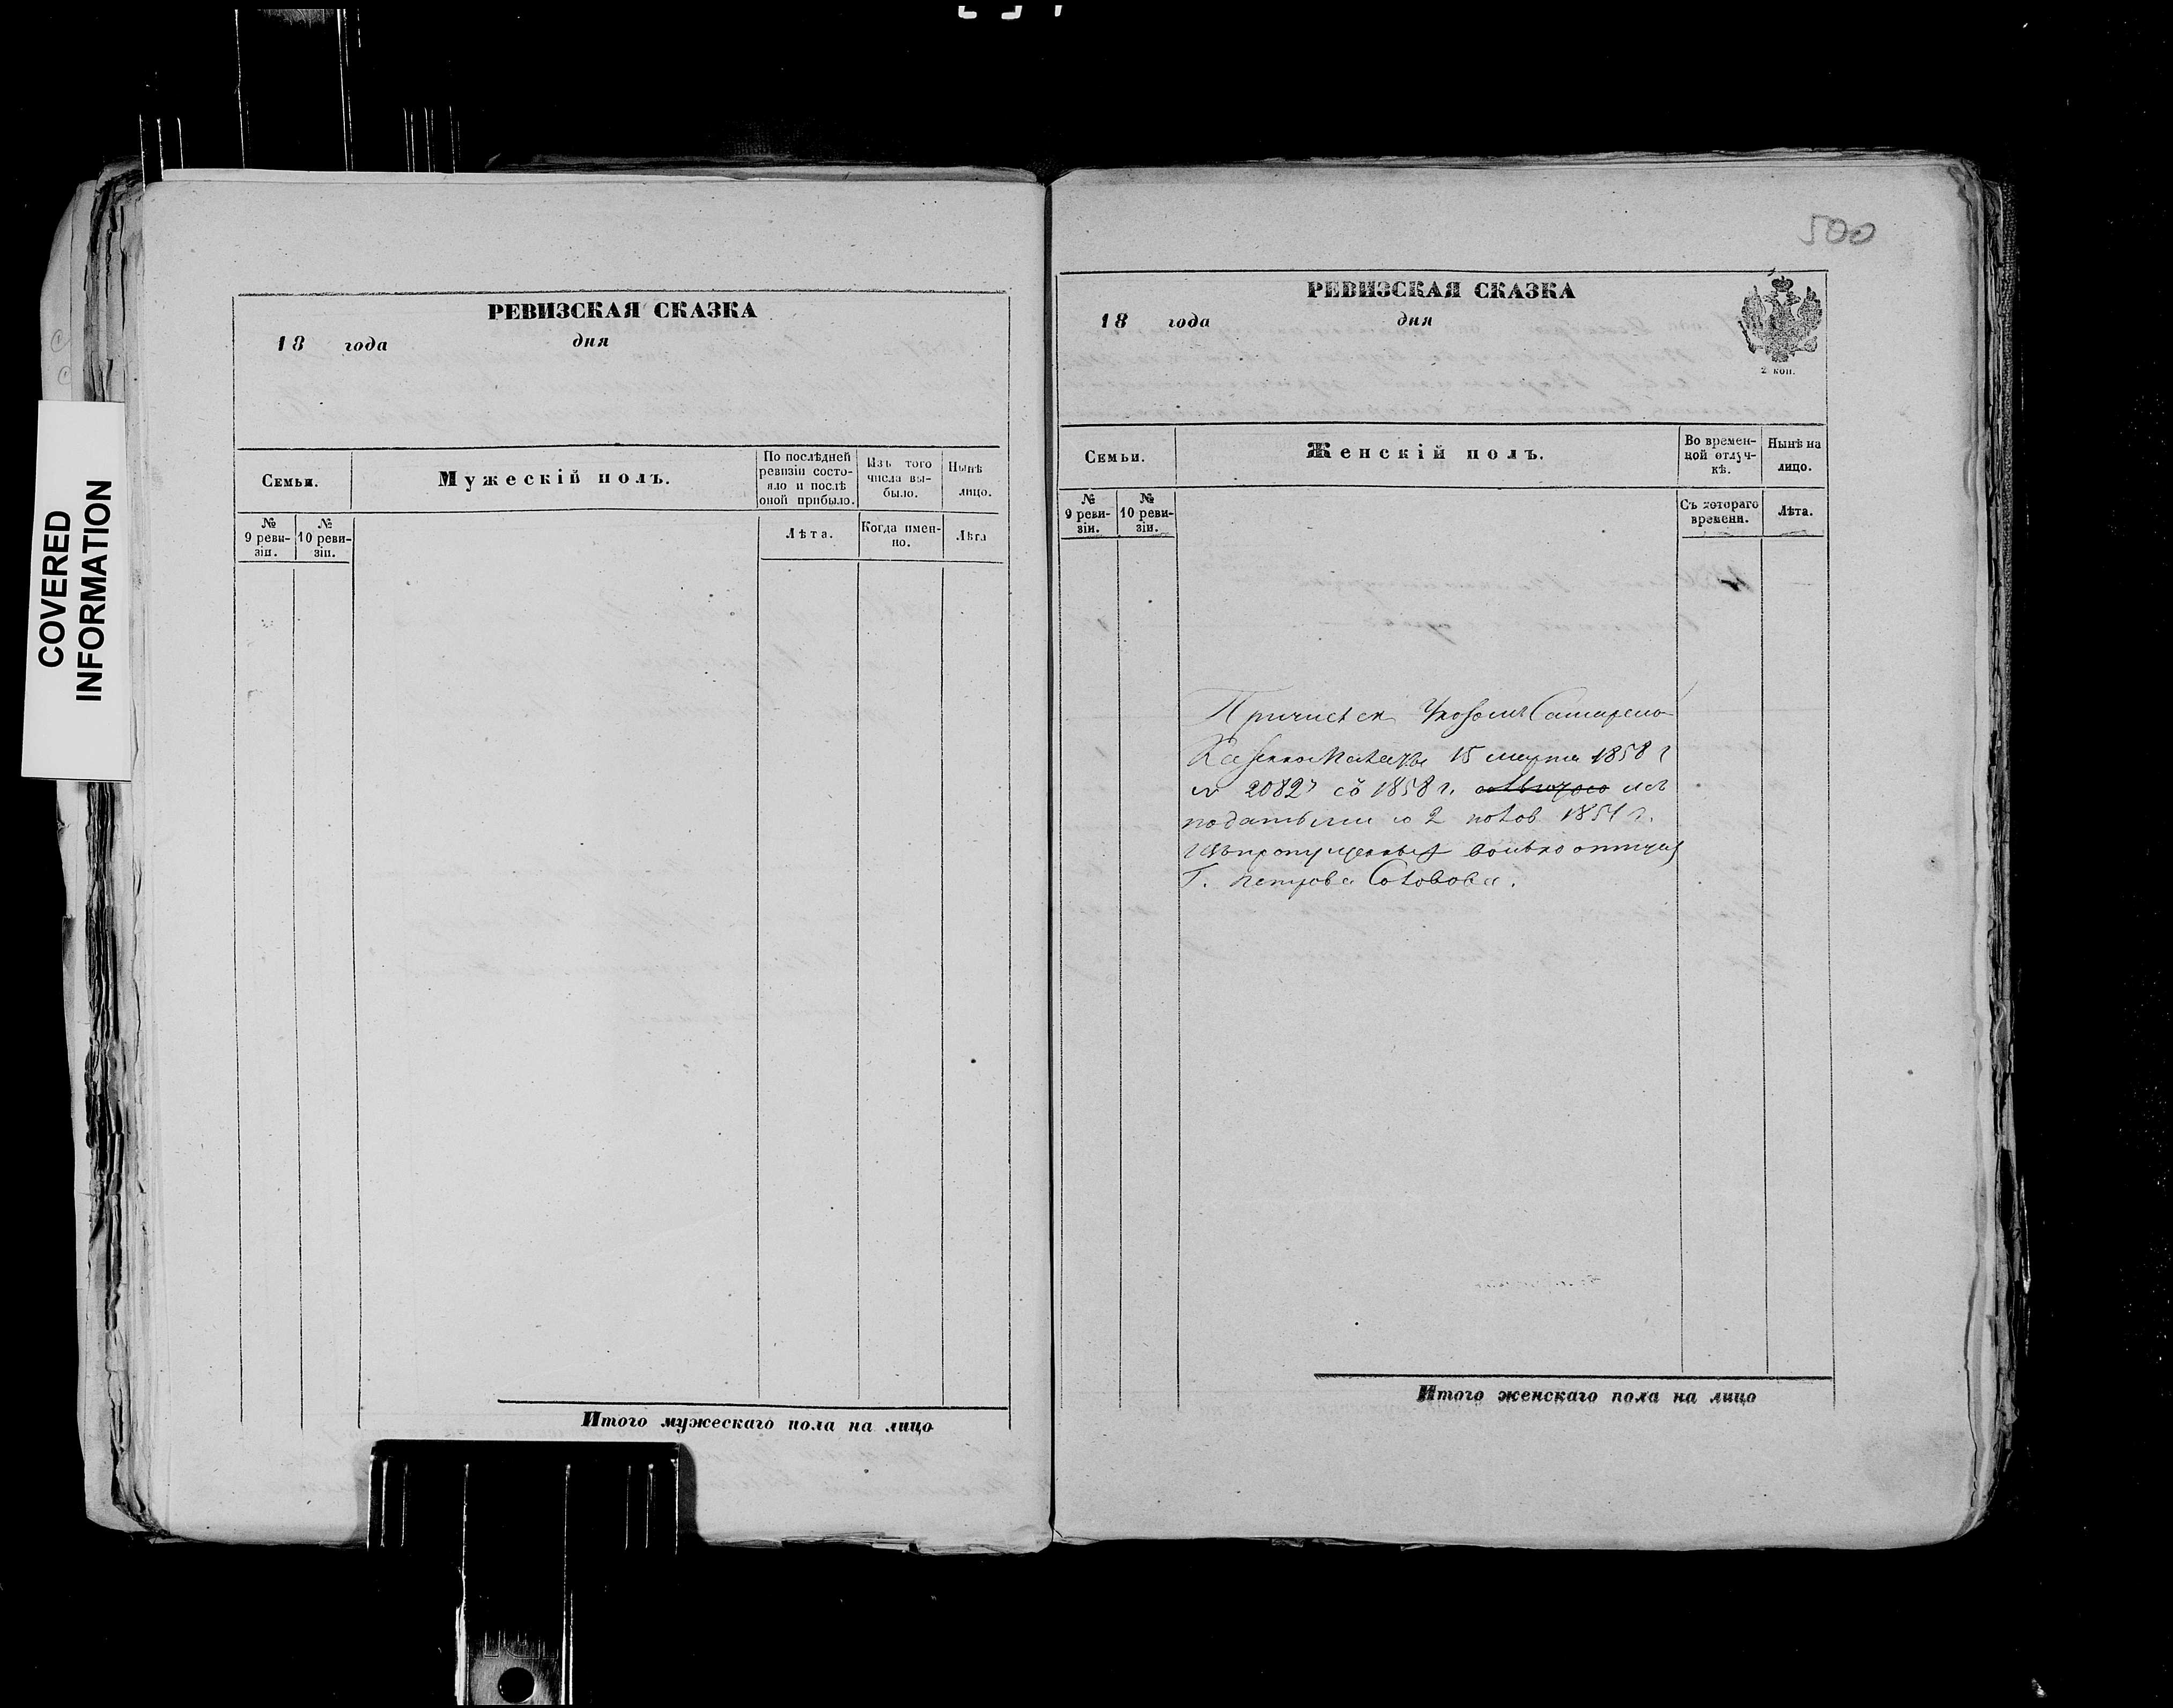 COVERED
INFORMATION
РЕВИЗСКАЯ СКАЗКА
18 года дня
Семьи.
Мужескій полъ.
По послѣдней ревизіи состояло и послѣ оной прибыло.
Изъ того числа выбыло.
Нынѣ лицо.
№ 9 ревизіи.
№ 10 ревизіи.
Лѣта.
Когда именно.
Лѣта
Итого мужескаго пола на лицо
500
РЕВИЗСКАЯ СКАЗКА
18 года дня
2 коп.
Семьи.
Женскій полъ.
Во временной отлучкѣ.
Нынѣ на лицо.
№ 9 ревизіи.
№ 10 ревизіи.
Съ котораго времени.
Лѣта.
Причислен Указом Самарской
Казенной Палаты 15 марта 1858 г
№ 2082 съ 1858 г. изъ
податьми со 2 полов 1851 г.
изъ пропущенных вольно отпущ
Г. Петрова Соловова.
Итого женскаго пола на лицо